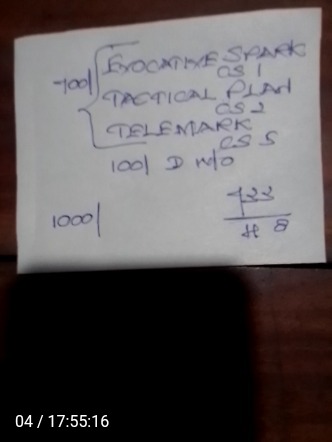 EVOCATIVE SPARK
CS 1
700/
TACTICAL PLAN
CS 2
TELEMARK
CS 5
100/ D N/O
1000/
04 / 17:55:16